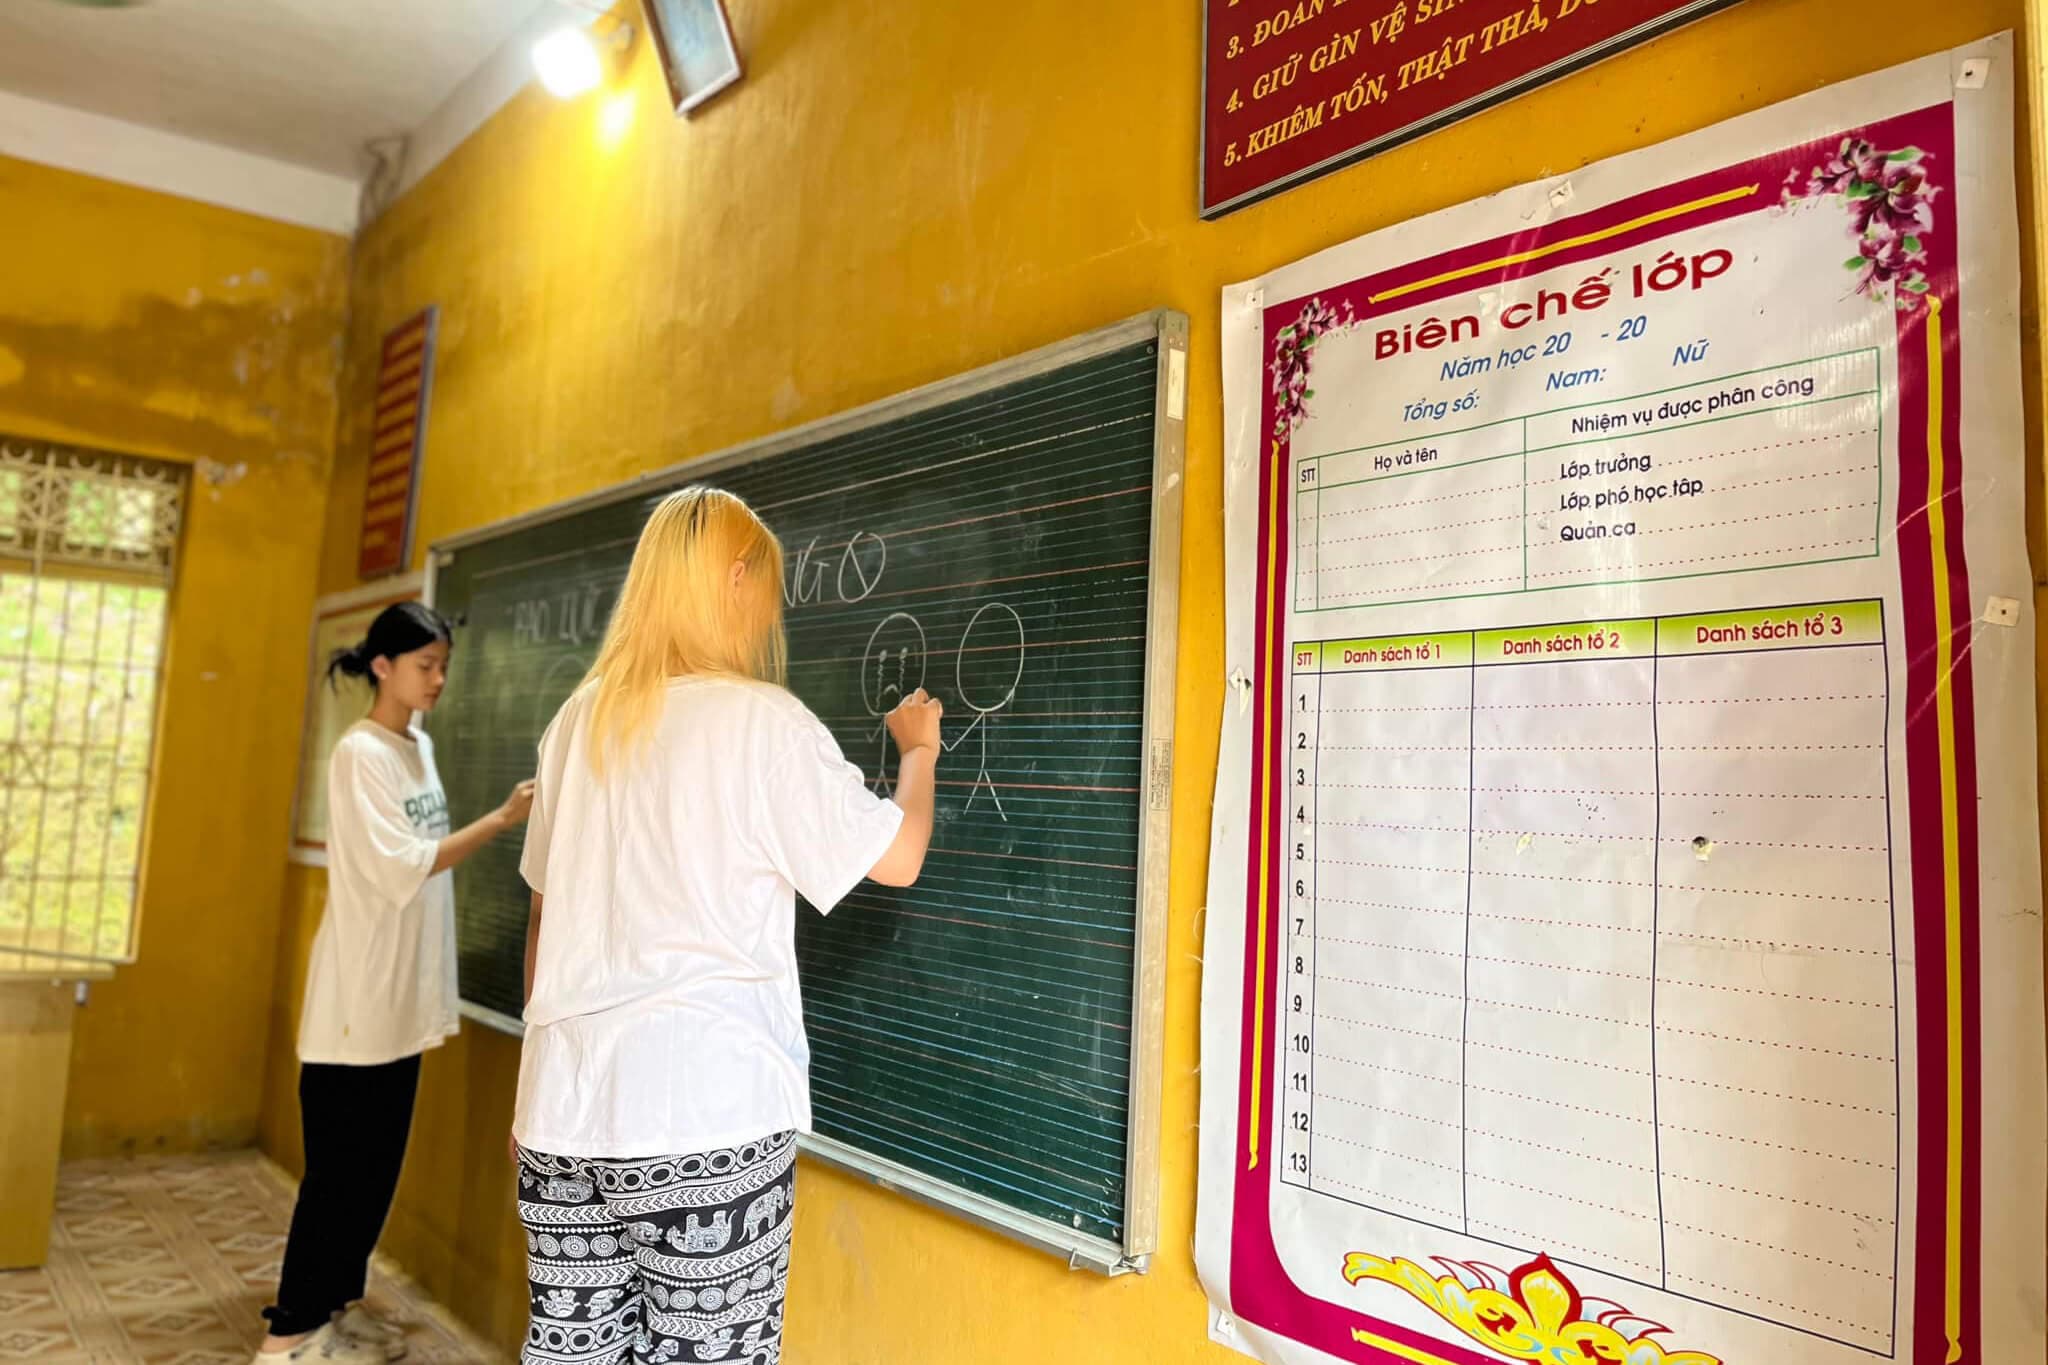 3. ĐOÀN
4. GIỮ GÌN VỆ SIN
5. KHIÊM TỐN, THẬT THÀ, D
Biên chế lớp
Năm học 20 - 20
Tổng số: Nam: Nữ
STT Họ và tên Nhiệm vụ được phân công
Lớp trưởng
Lớp phó học tập
Quản ca
STT Danh sách tổ 1 Danh sách tổ 2 Danh sách tổ 3
1
2
3
4
5
6
7
8
9
10
11
12
13
BẠO LỰC
NG